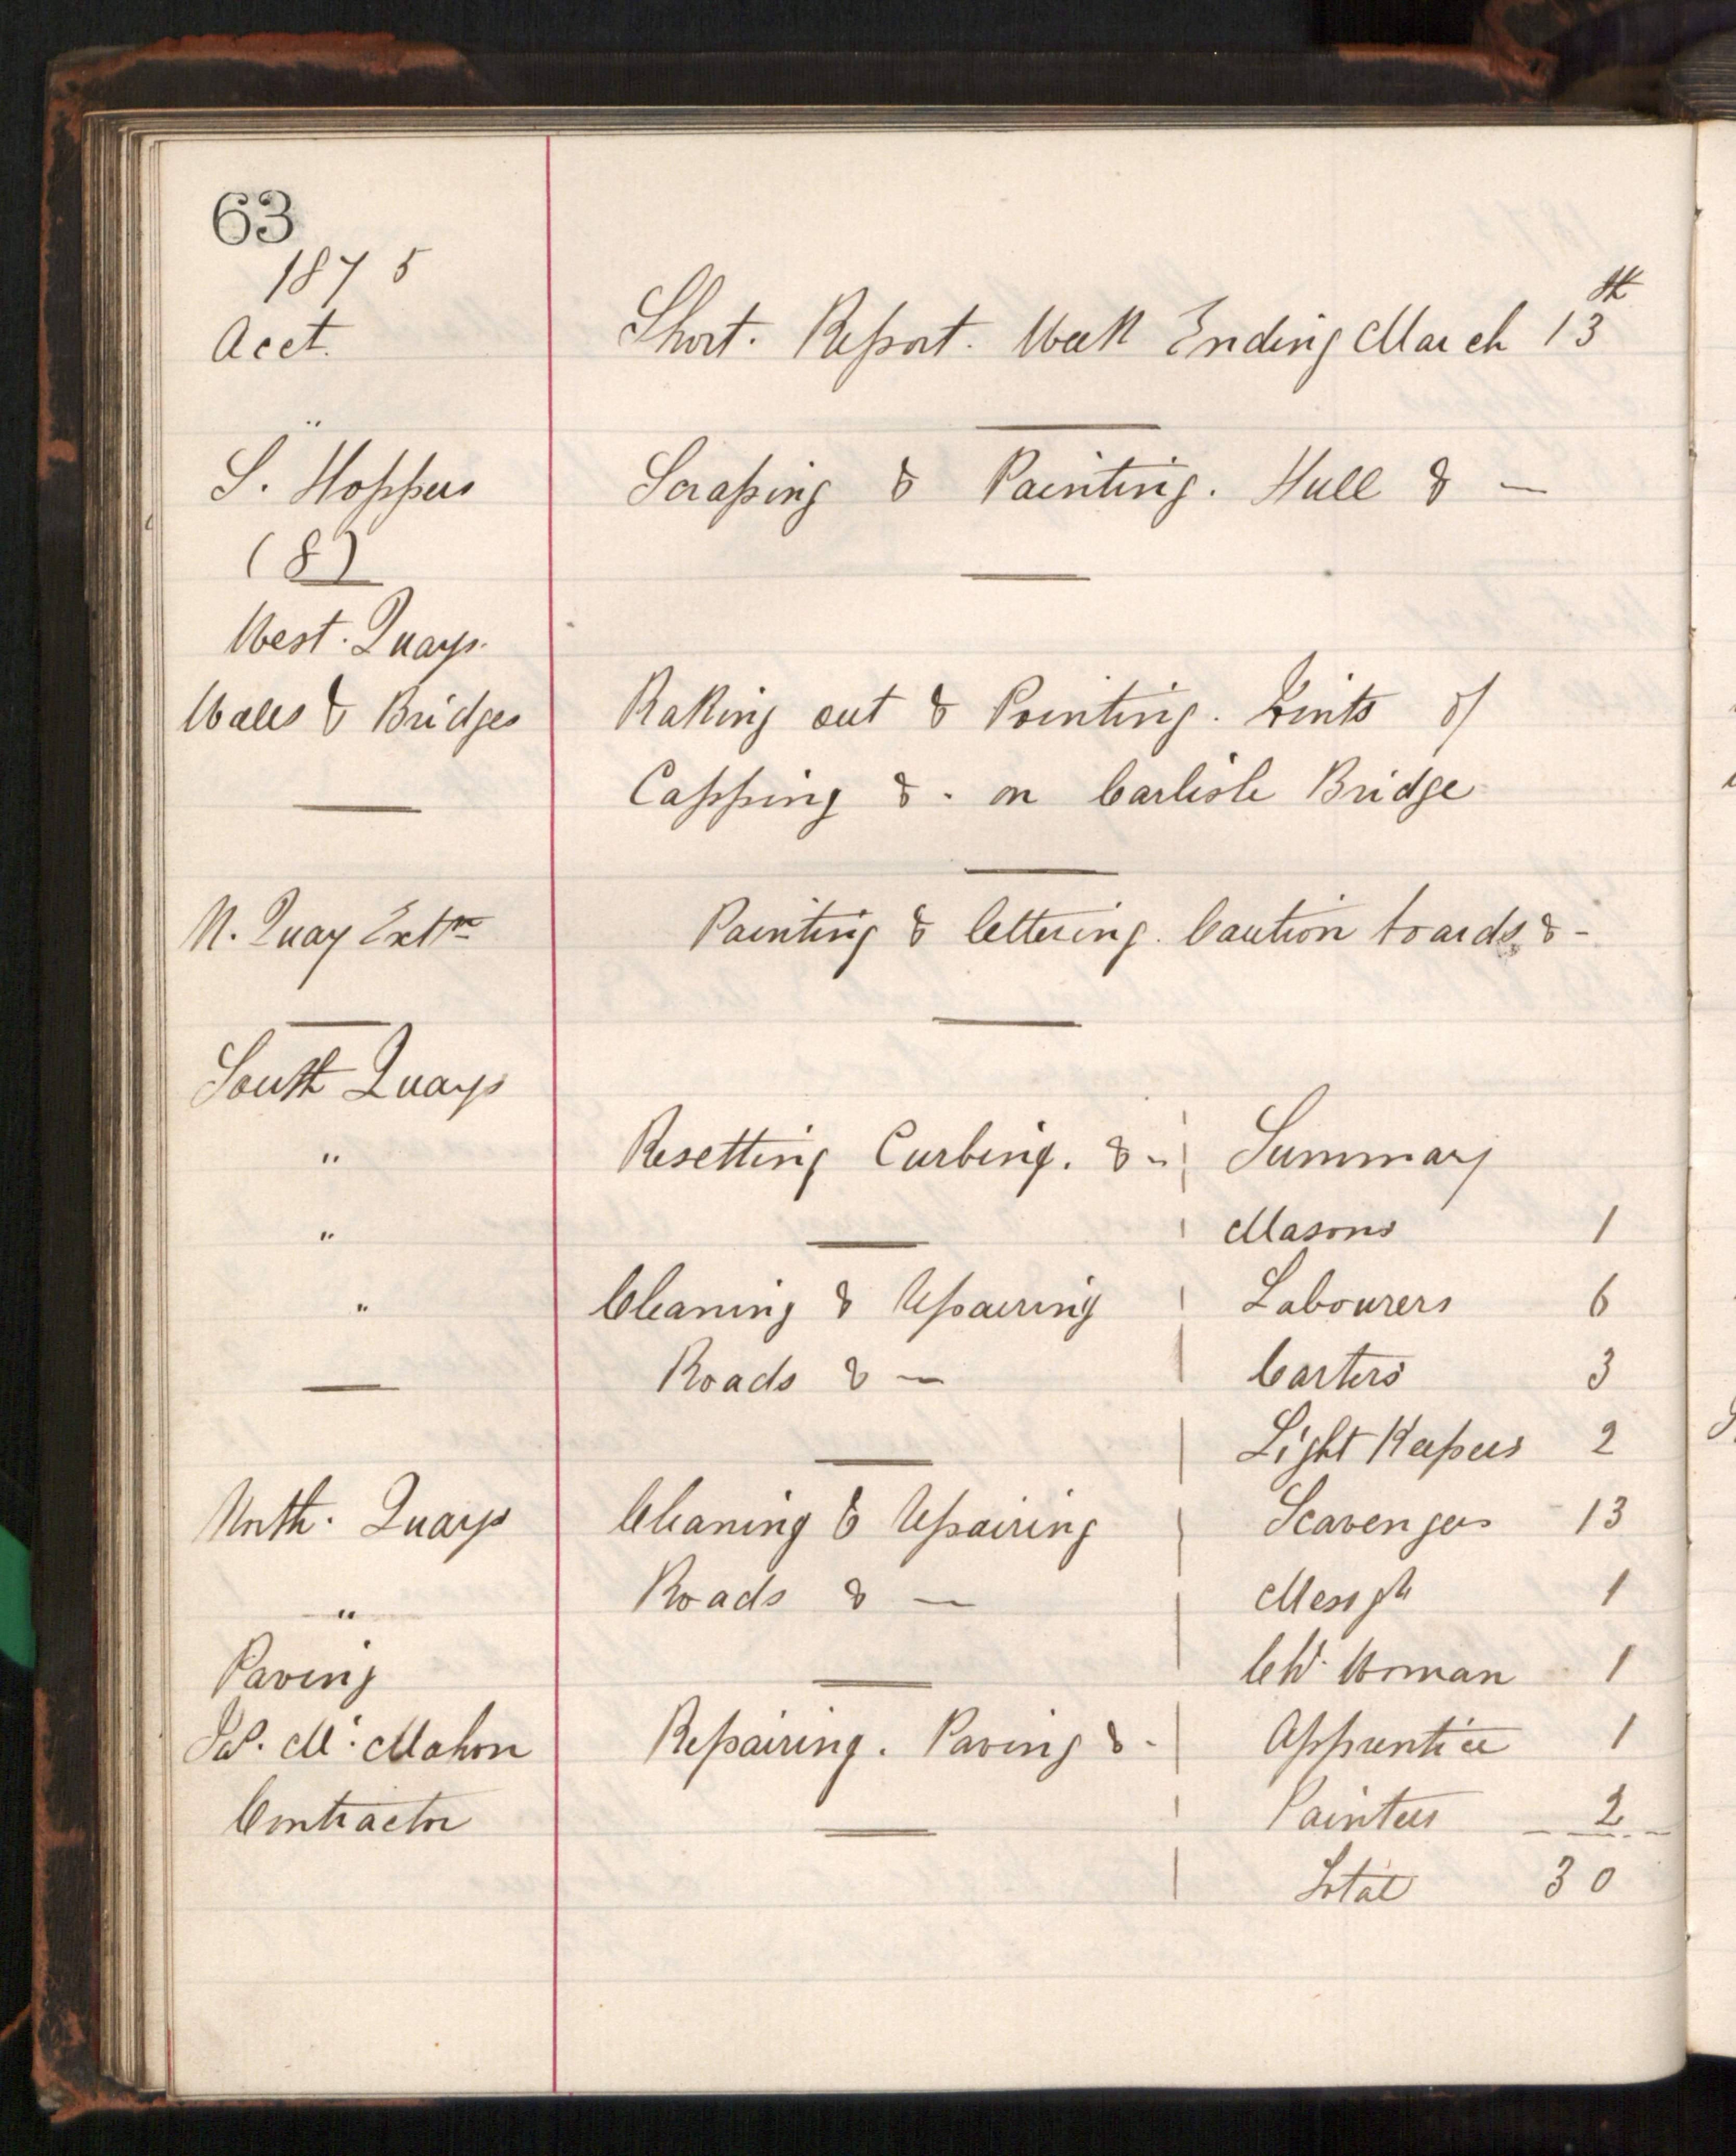 63
1875
Acct. Short. Report. Week Ending March 13th
S. Hoppers Scraping & Painting. Hull & —
(8)
West. Quays.
Walls & Bridges Raking out & Pointing. Joints of
Capping &. on Carlisle Bridge
N. Quay Extn Painting & lettering. Caution boards & -
South Quays
" Resetting Curbing. & - Summary
" Masons 1
" Cleaning & Repairing Labourers 6
Roads & — Carters 3
Light Keepers 2
North. Quays Cleaning & Repairing Scavengers 13
" Roads & — Messgr 1
Paving CW. Woman 1
Mc. Mahon Repairing. Paving & - Apprentice 1
Contractor Painters 2
Total 30